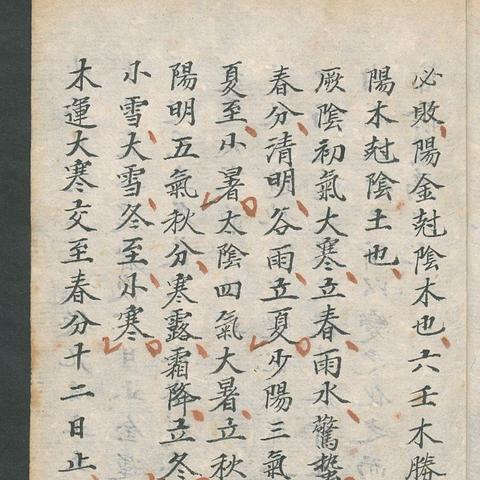 必敗陽金尅陰木也六壬木勝
陽木尅陰土也
厥陰初氣大寒立春雨水驚蟄
春分清明谷雨立夏少陽三氣
夏至小暑太陰四氣大暑立秋
陽明五氣秋分寒露霜降立冬
小雪大雪冬至小寒
木運大寒交至春分十二日止